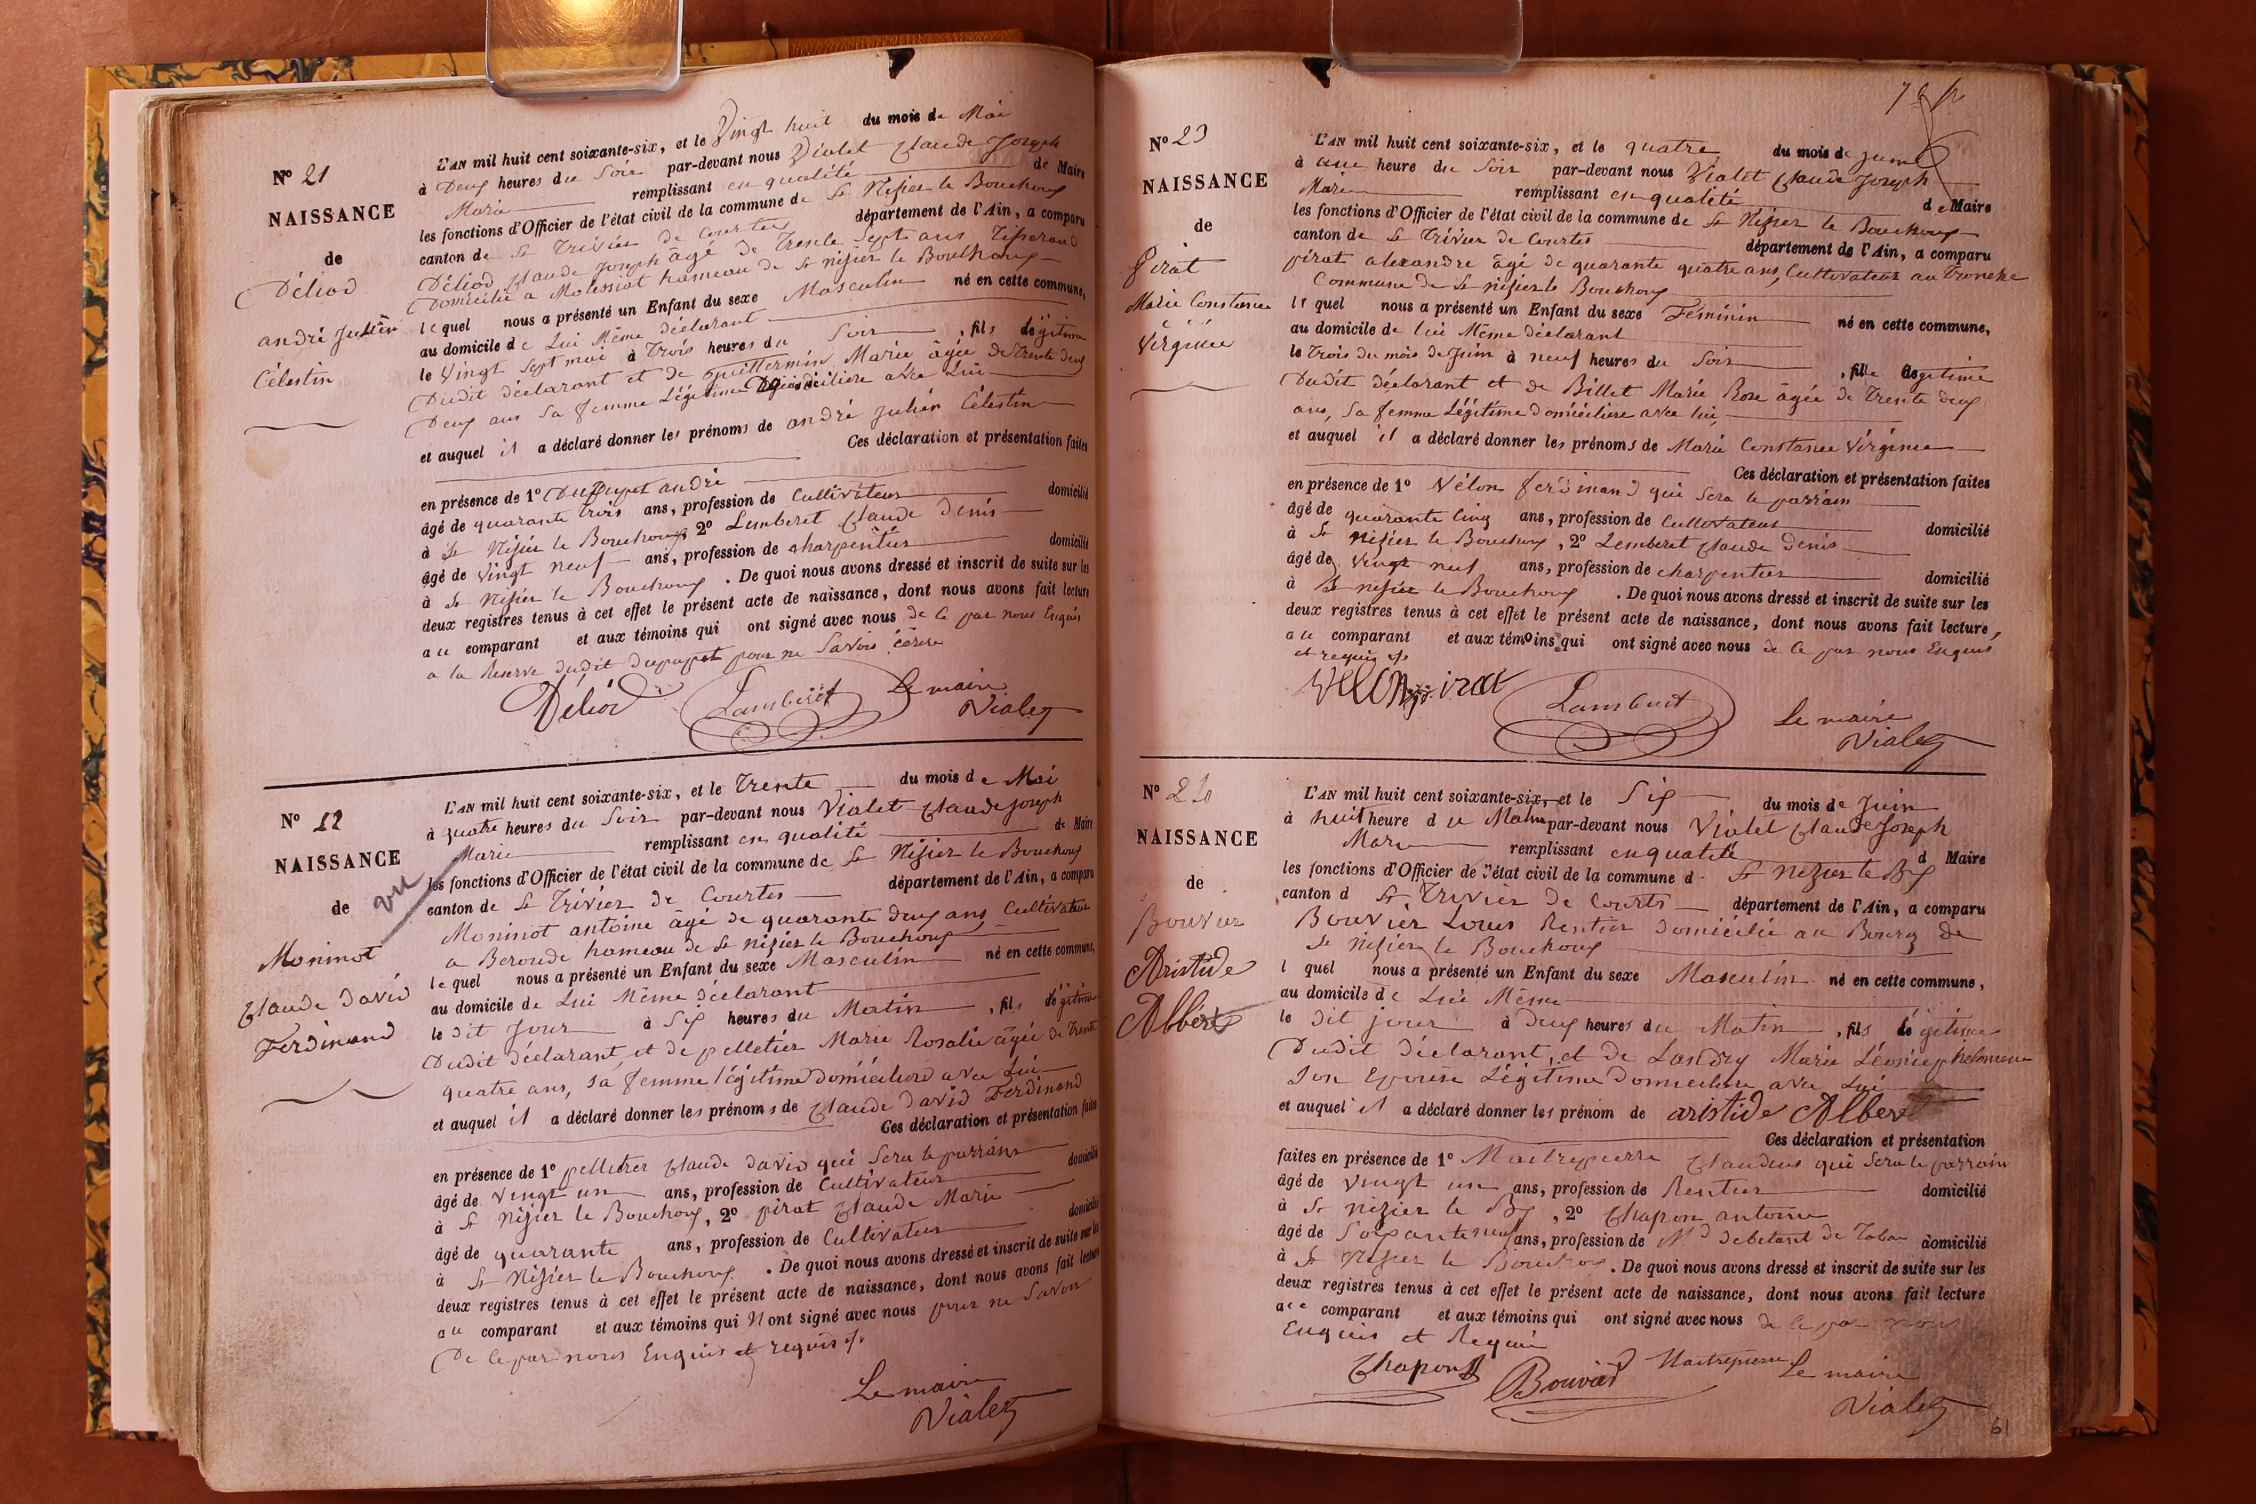 No 21
NAISSANCE
de
Déliod
andré Julien
Célestin
L'AN mil huit cent soixante-six, et le Vingt huit du mois de Mai
à Deux heures du Soir par-devant nous Violet Claude Joseph
Maire remplissant en qualité de Maire
les fonctions d'Officier de l'état civil de la commune de St Nizier le Bouchoux
canton de St Trivier de Courtes département de l'Ain, a comparu
Déliod Claude Joseph âgé de Trente Sept ans Tisserand
Domicilié a Molessiat hameau de St nizier le Bouchoux
lequel nous a présenté un Enfant du sexe Masculin né en cette commune,
au domicile de Lui Même déclarant
le Vingt Sept mai à Trois heures du Soir, fils légitime
Dudit déclarant et de Guillermin Marie âgée de trente deux
Deux ans Sa femme Légitime Domiciliere avec Lui
et auquel il a déclaré donner les prénoms de andré Julien Célestin
Ces déclaration et présentation faites
en présence de 1o Dupupet andré
âgé de quarante trois ans, profession de Cultivateur domicilié
à St Nizier le Bouchoux 2o Lemberet Claude Denis
âgé de Vingt neuf ans, profession de charpentier domicilié
à St Nizier le Bouchoux. De quoi nous avons dressé et inscrit de suite sur les
deux registres tenus à cet effet le présent acte de naissance, dont nous avons fait lecture
au comparant et aux témoins qui ont signé avec nous de ce par nous Enquis
a la Reserve dudit Dupupet pour ne Savoir écrire
Déliod Lamberet Le maire
Violet
No 22
NAISSANCE
de
vu
Moninot
Claude David
Ferdinand
L'AN mil huit cent soixante-six, et le Trente du mois de Mai
à quatre heures du Soir par-devant nous Violet Claude Joseph
Maire remplissant en qualité de Maire
les fonctions d'Officier de l'état civil de la commune de St Nizier le Bouchoux
canton de St Trivier de Courtes département de l'Ain, a comparu
Moninot antoine âgé de quarante deux ans Cultivateur
a Beroude hameau de St nizier le Bouchoux
lequel nous a présenté un Enfant du sexe Masculin né en cette commune,
au domicile de Lui Même déclarant
le dit Jour à Six heures du Matin, fils légitime
Dudit déclarant, et de pelletier Marie Rosalie âgée de Trente
quatre ans, sa femme légitime Domiciliere avec Lui
et auquel il a déclaré donner les prénoms de Claude David Ferdinand
Ces déclaration et présentation faites
en présence de 1o pelletier Claude David qui Sera le parrain
âgé de Vingt un ans, profession de Cultivateur domicilié
à St Nizier le Bouchoux, 2o pirat Claude Marie
âgé de quarante ans, profession de Cultivateur domicilié
à St Nizier le Bouchoux. De quoi nous avons dressé et inscrit de suite sur les
deux registres tenus à cet effet le présent acte de naissance, dont nous avons fait lecture
au comparant et aux témoins qui N'ont signé avec nous pour ne Savoir
De ce par nous Enquis et requis
Le maire
Violet
No 23
NAISSANCE
de
Pirat
Marie Constance
Virginie
L'AN mil huit cent soixante-six, et le quatre du mois de Juin
à une heure du Soir par-devant nous Violet Claude Joseph
Maire remplissant en qualité de Maire
les fonctions d'Officier de l'état civil de la commune de St Nizier le Bouchoux
canton de St Trivier de Courtes département de l'Ain, a comparu
pirat alexandre âgé de quarante quatre ans, Cultivateur au Tronche
Commune de St nizier le Bouchoux
lequel nous a présenté un Enfant du sexe Féminin né en cette commune,
au domicile de lui Même déclarant
le Trois du mois de Juin à neuf heures du Soir, fille légitime
Dudit déclarant et de Billet Marie Rose âgée de Trente deux
ans, Sa femme Légitime domiciliere avec lui,
et auquel il a déclaré donner les prénoms de Marie Constance Virginie
Ces déclaration et présentation faites
en présence de 1o Vélon ferdinand qui Sera le parrain
âgé de quarante Cinq ans, profession de Cultivateur domicilié
à St nizier le Bouchoux, 2o Lemberet Claude Denis
âgé de Vingt neuf ans, profession de charpentier domicilié
à St nizier le Bouchoux. De quoi nous avons dressé et inscrit de suite sur les
deux registres tenus à cet effet le présent acte de naissance, dont nous avons fait lecture,
au comparant et aux témoins qui ont signé avec nous de ce par nous Enquis
et requis
Velon pirat Lamberet Le maire
Violet
No 24
NAISSANCE
de
Bouvier
Aristide
Albert
L'AN mil huit cent soixante-six, et le Six du mois de Juin
à huit heure du Matin par-devant nous Violet Claude Joseph
Maire remplissant en qualité d Maire
les fonctions d'Officier de l'état civil de la commune d St Nizier le Bx
canton d St Trivier de Courts département de l'Ain, a comparu
Bouvier Louis Rentier Domicilié au Bourg de
St Nizier le Bouchoux
l quel nous a présenté un Enfant du sexe Masculin né en cette commune,
au domicile de Lui Même
le dit jour à deux heures du Matin, fils légitime
Dudit déclarant, et de Landry Marie Léonie philomene
Son Epouse Légitime Domiciliere avec Lui
et auquel il a déclaré donner les prénom de aristide Albert
Ces déclaration et présentation
faites en présence de 1o Maitrepierre Claudius qui Sera le parrain
âgé de Vingt un ans, profession de Rentier domicilié
à St nizier le Bx, 2o Chapon antoine
âgé de Soixante neuf ans, profession de Md debitant de Tabac domicilié
à St Nizier le Bouchoux. De quoi nous avons dressé et inscrit de suite sur les
deux registres tenus à cet effet le présent acte de naissance, dont nous avons fait lecture
au comparant et aux témoins qui ont signé avec nous de ce par nous
Enquis et Requis
Chapon Bouvier Maitrepierre Le maire
Violet
61